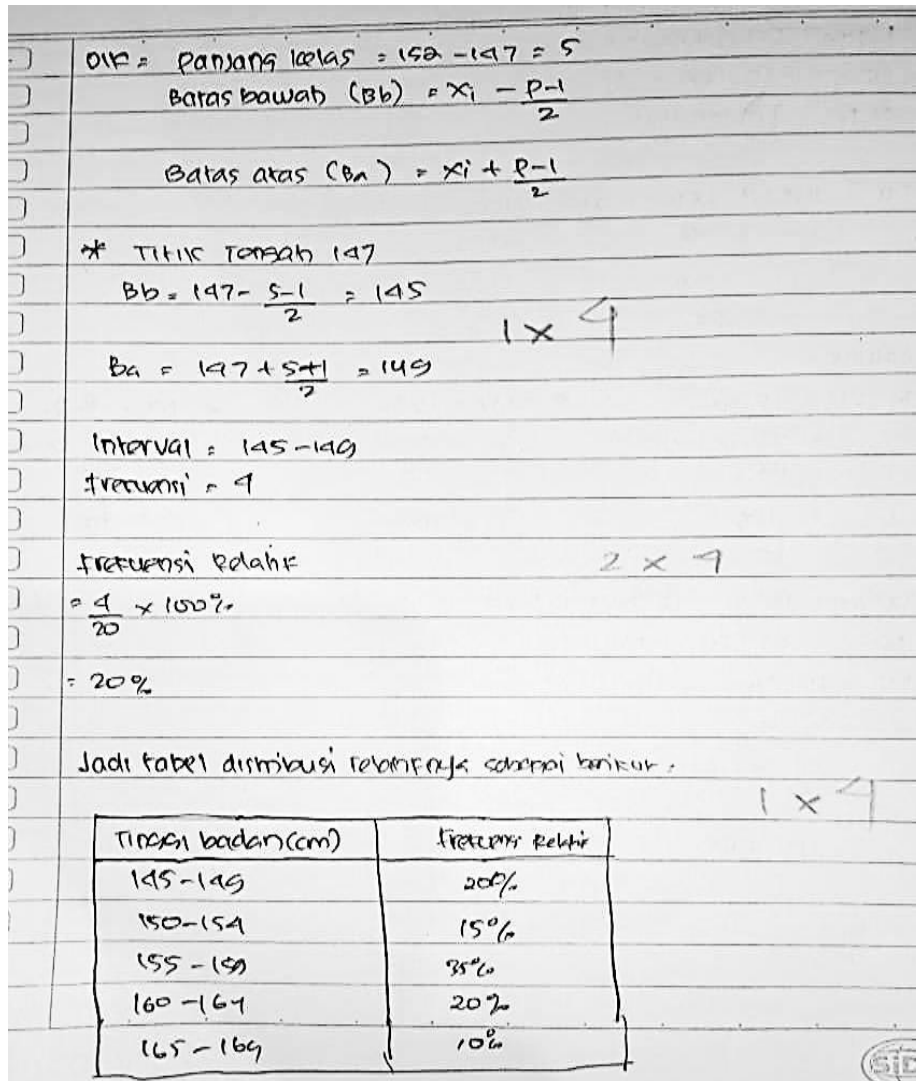 Dik = Panjang kelas = 152 - 147 = 5
Batas bawah (Bb) = xi - p-1/2
Batas atas (Ba) = xi + p-1/2
* Titik Tengah 147
Bb = 147 - 5-1/2 = 145
1 x 4
Ba = 147 + 5+1/2 = 149
Interval = 145-149
frekuensi = 4
frekuensi Relatif
2 x 4
= 4/20 x 100%
= 20%
Jadi tabel distribusi relatifnya sebagai berikut:
1 x 4
Tinggi badan (cm) frekuensi Relatif
145-149 20%
150-154 15%
155-159 35%
160-164 20%
165-169 10%
SiD